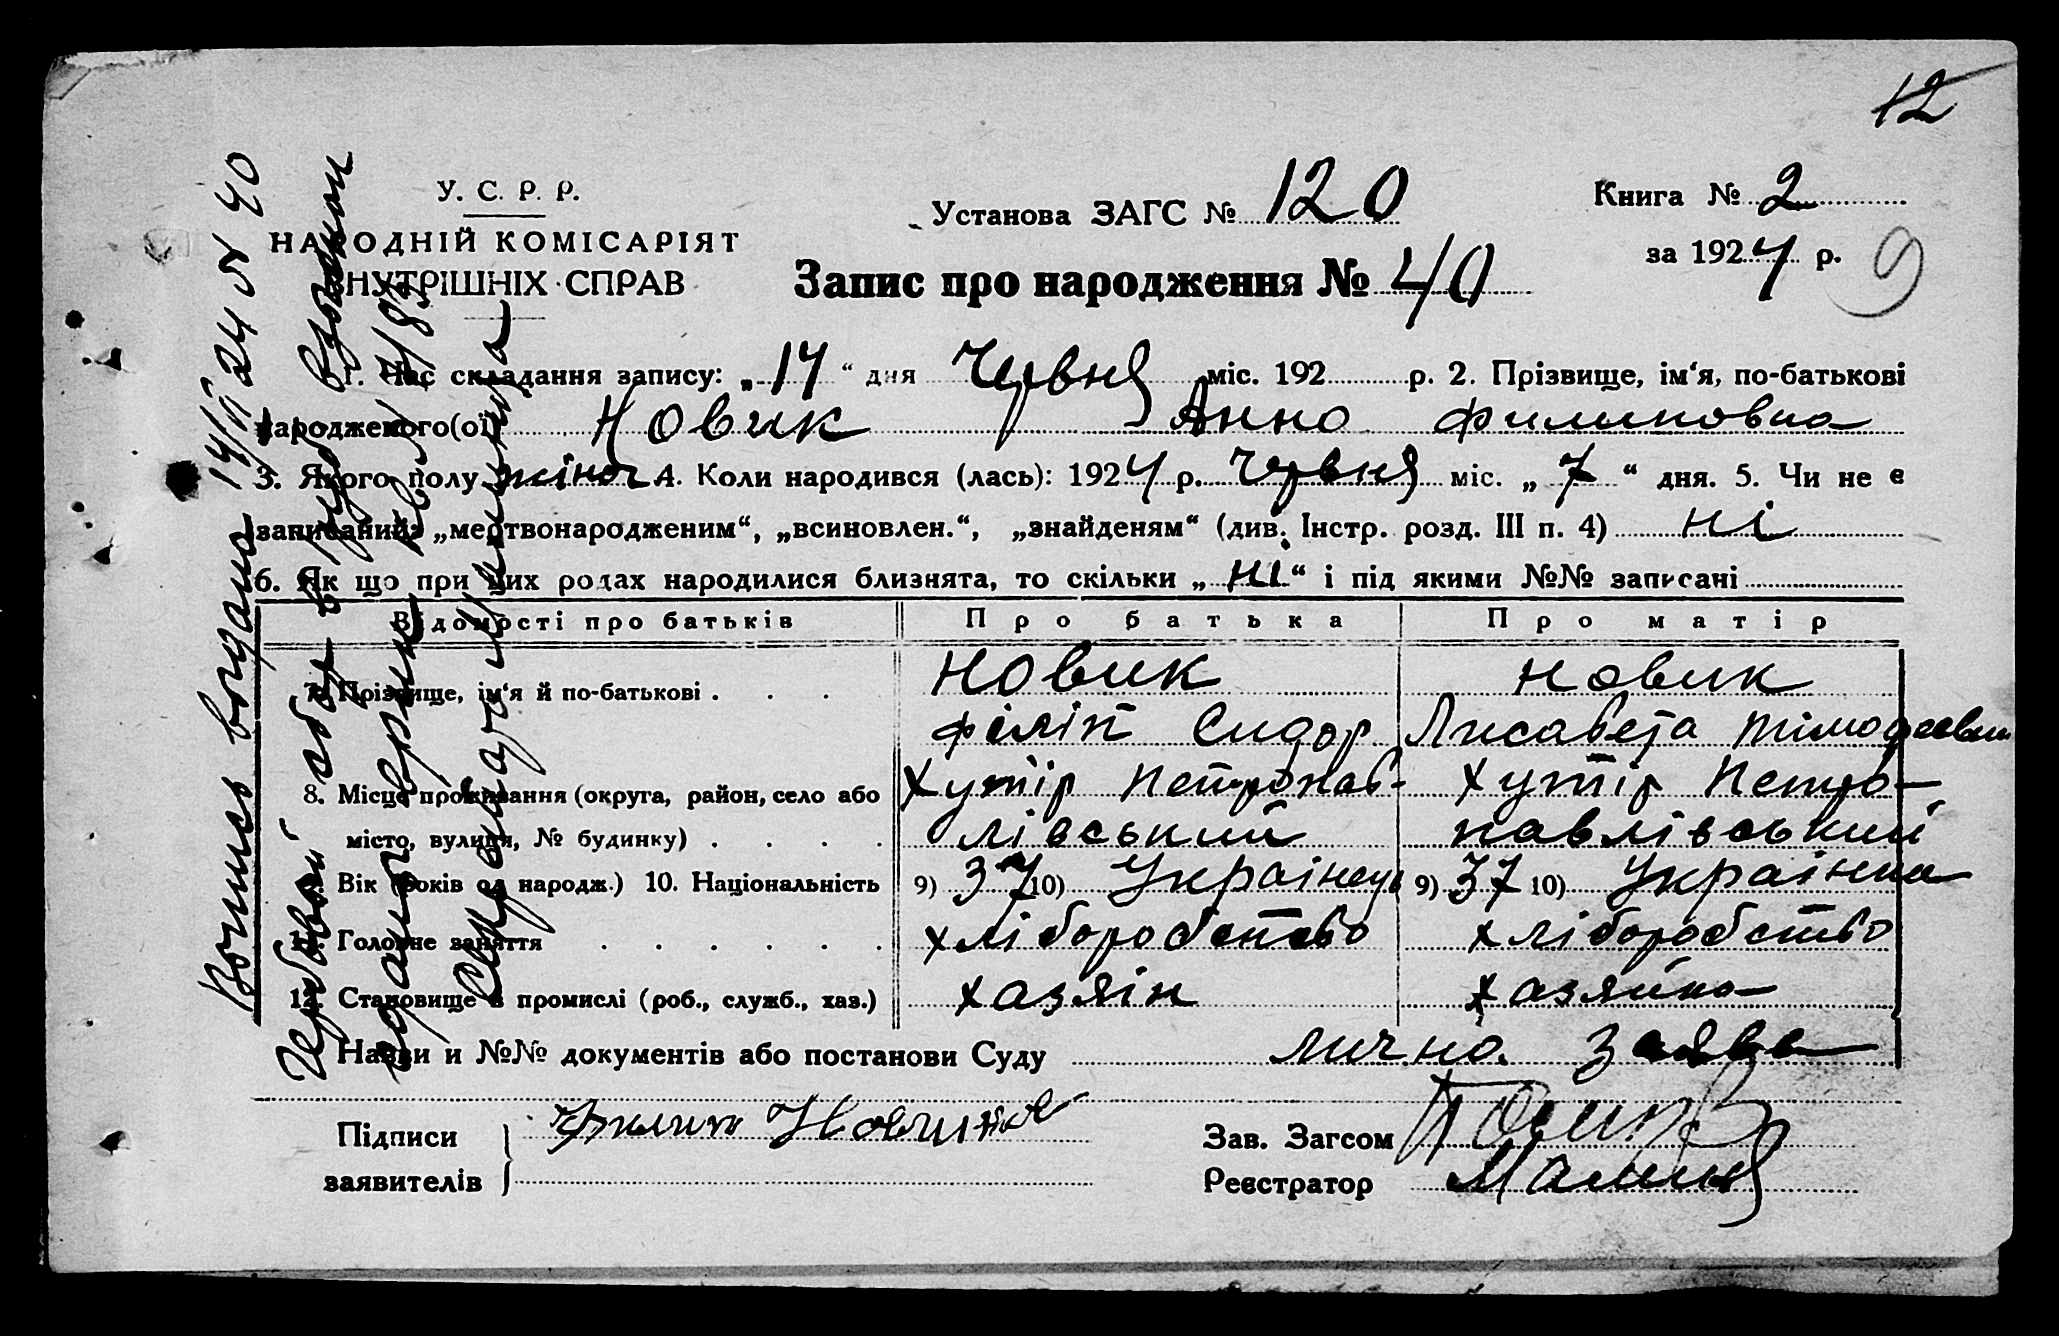 12
У. С. Р. Р.
НАРОДНІЙ КОМІСАРІЯТ
ВНУТРІШНІХ СПРАВ
Установа ЗАГС № 120
Книга № 2
за 1924 р.
9
Запис про народження № 40
1. Час складання запису: „14“ дня Червня міс. 192 р. 2. Прізвище, ім‘я, по-батькові
народженого(ої) Новик Анно Филиповна
3. Якого полу жіноч 4. Коли народився (лась): 1924 р. Червня міс. „7“ дня. 5. Чи не є
записаний: „мертвонародженим“, „всиновлен.“, „знайденям“ (див. Інстр. розд. III п. 4) ні
6. Як що при цих родах народилися близнята, то скільки „ні“ і під якими №№ записані
Відомості про батьків Про батька Про матір
7. Прізвище, ім‘я й по-батькові . . . Новик Новик
Філіп Сидор Лисавета
8. Місце проживання (округа, район, село або Хутір Петропав- Хутір Петро-
місто, вулиця, № будинку) . . . . лівський павлівський
9. Вік (років од народж.) 10. Національність 9) 37 10) Українець 9) 37 10) Українка
11. Головне заняття . . . . . . хлібороб хліборобство
12. Становище в промислі (роб., служб., хаз.) хазяін хазяйка
Назви и №№ документів або постанови Суду лично. заява
Підписи заявителів Филип
Зав. Загсом
Реєстратор
14/VI 24 № 40